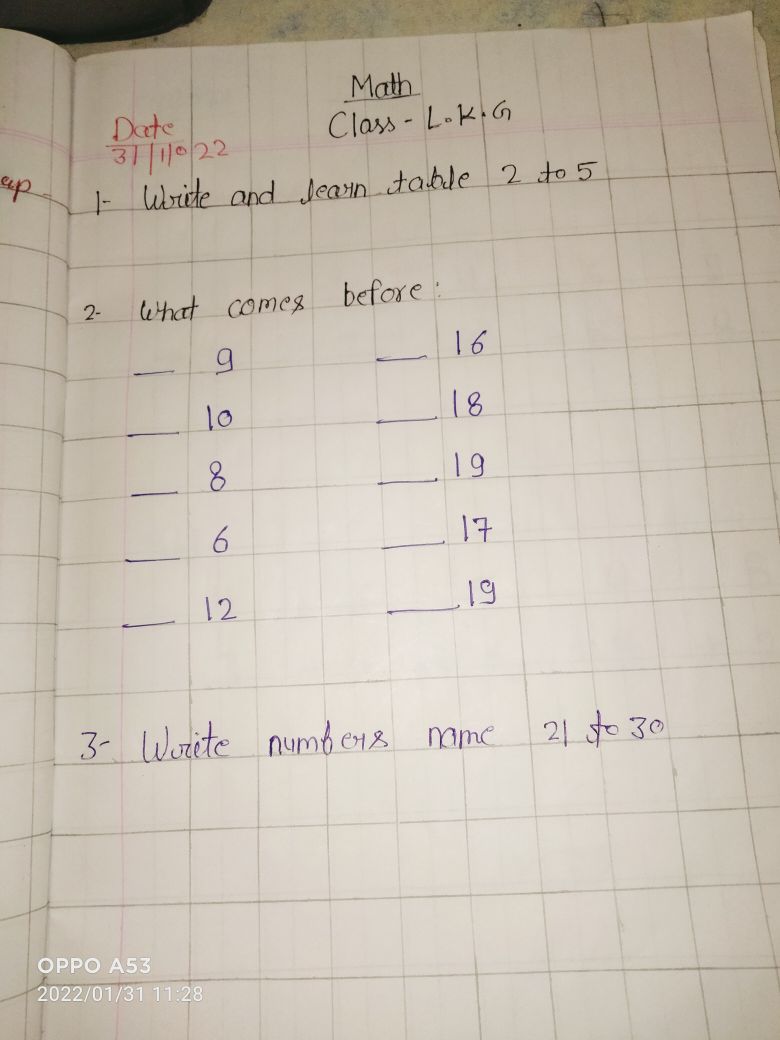 Math
Class - L.K.G
Date
31/1/22
1- Write and learn table 2 to 5
2- What comes before:
__ 9 __ 16
__ 10 __ 18
__ 8 __ 19
__ 6 __ 17
__ 12 __ 19
3- Write numbers name 21 to 30
OPPO A53
2022/01/31 11:28